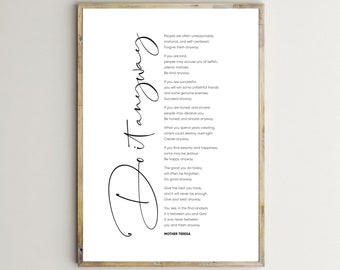 Do it anyway
People are often unreasonable,
irrational, and self-centered.
Forgive them anyway.
If you are kind,
people may accuse you of selfish,
ulterior motives.
Be kind anyway.
If you are successful
you will win some unfaithful friends
and some genuine enemies.
Succeed anyway.
If you are honest and sincere
people may deceive you.
Be honest and sincere anyway.
What you spend years creating,
others could destroy overnight.
Create anyway.
If you find serenity and happiness,
some may be jealous.
Be happy anyway.
The good you do today,
will often be forgotten.
Do good anyway.
Give the best you have,
and it will never be enough.
Give your best anyway.
You see, in the final analysis
it is between you and God
It was never between
you and them anyway.
MOTHER TERESA